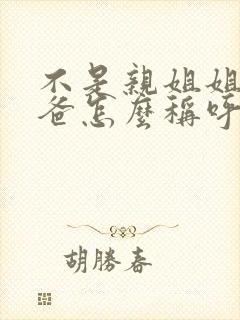 不是親姐姐
爸怎麼稱呼
胡勝春